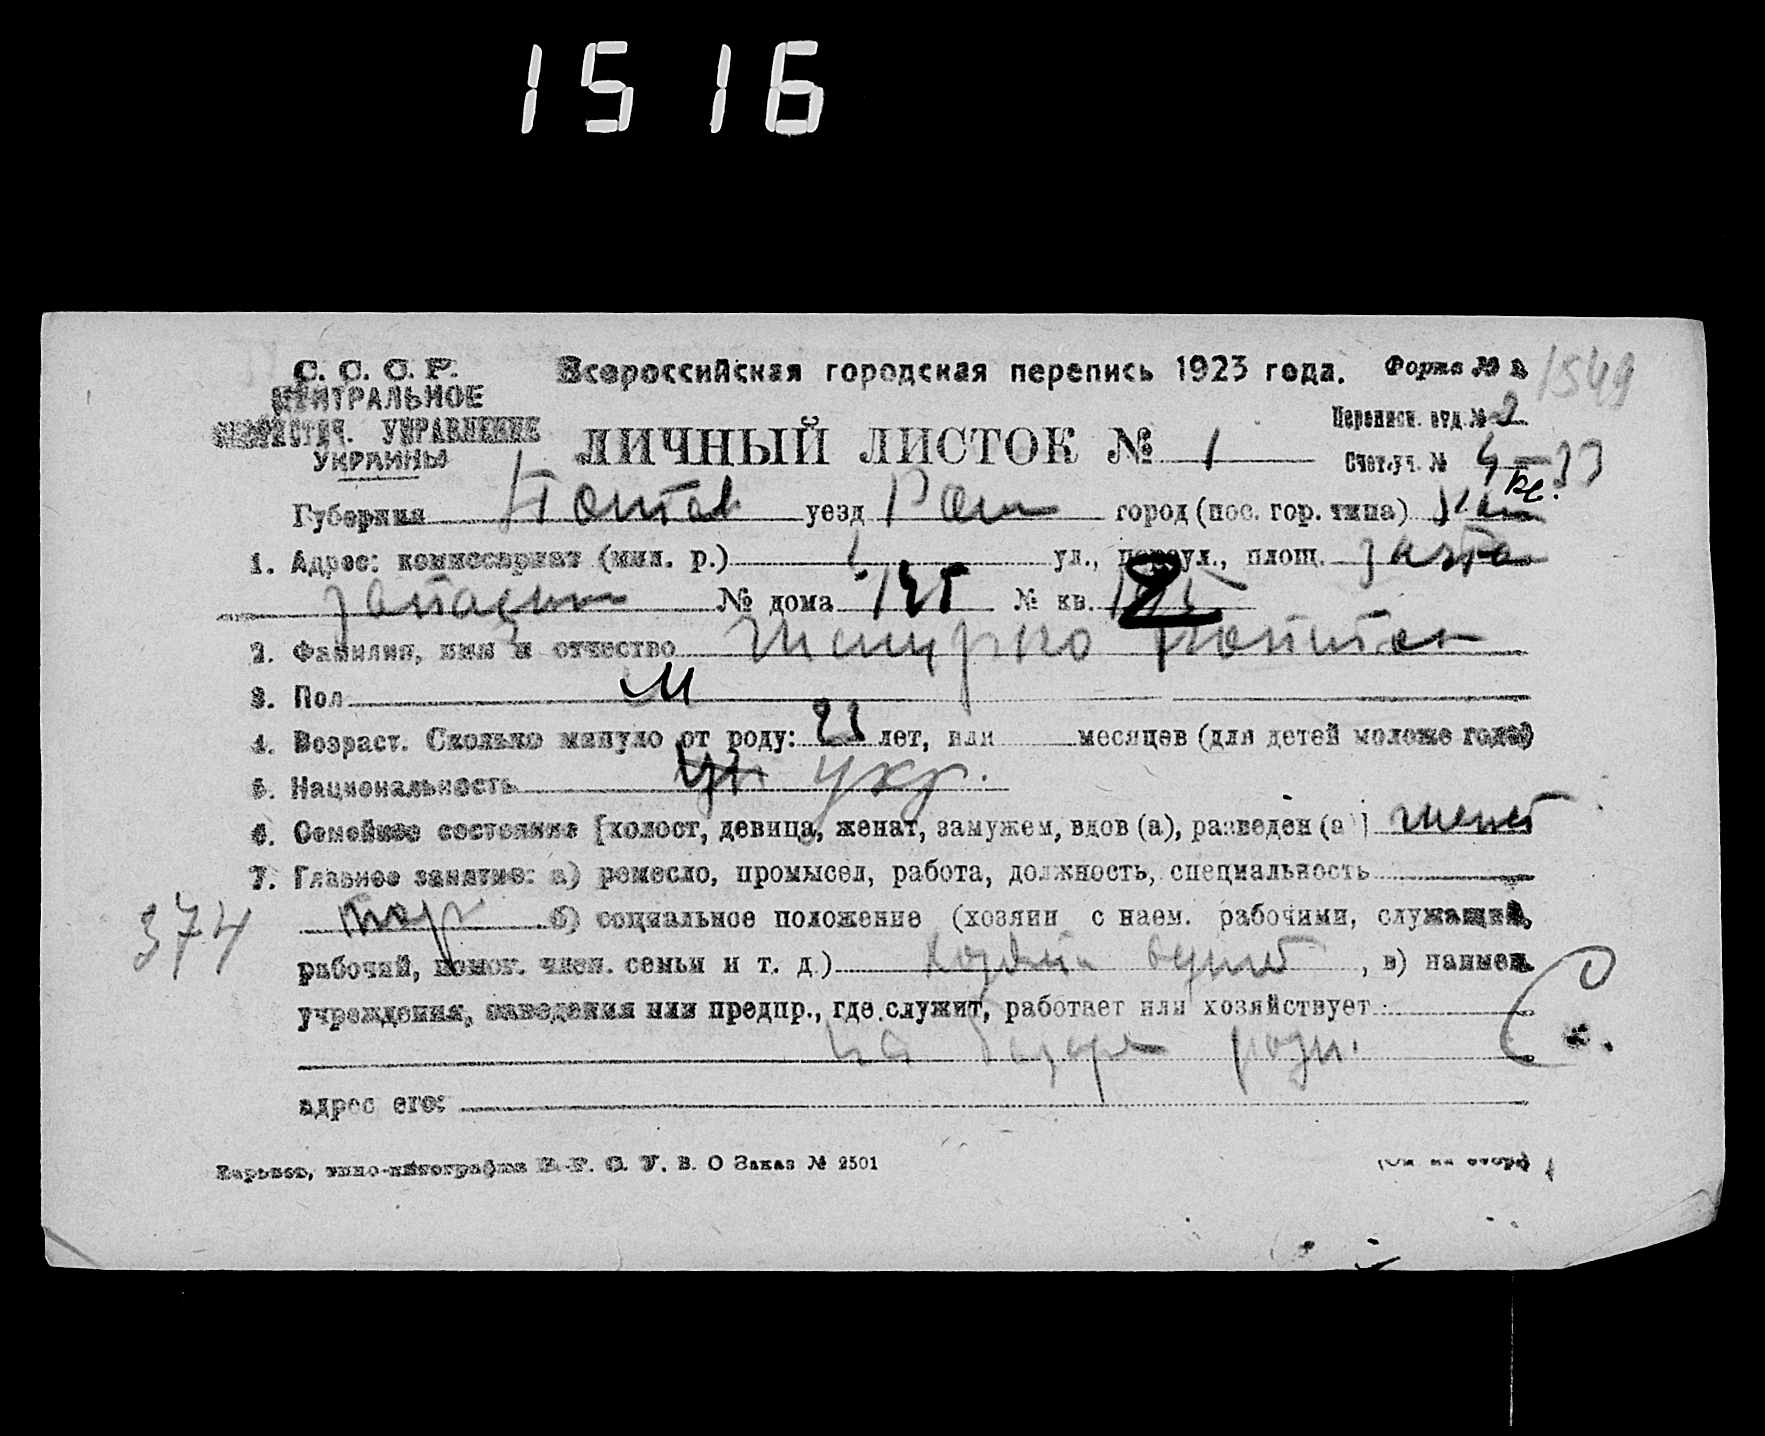 1516
С. С. С. Р.
Всероссийская городская перепись 1923 года.
Форма № 2
1549
ЦЕНТРАЛЬНОЕ
СТАТИСТИЧ. УПРАВЛЕНИЕ
УКРАИНЫ
Переписн. отд. № 2
ЛИЧНЫЙ ЛИСТОК № 1
Счет. уч. № 4-33
Губерния Полтав уезд Ром город (пос. гор. типа)
1. Адрес: комиссариат (мил. р.) ул., переул., площ.
№ дома 125 № кв. 2
2. Фамилия, имя и отчество
3. Пол М
4. Возраст. Сколько минуло от роду: 23 лет, или месяцев (для детей моложе года)
5. Национальность укр.
6. Семейное состояние [холост, девица, женат, замужем, вдов (а), разведен (а)] женат
7. Главное занятие: а) ремесло, промысел, работа, должность, специальность
374
торг б) социальное положение (хозяин с наем. рабочими, служащий,
рабочий, помог. член. семьи и т. д.) хозяин один, в) наимен.
учреждения, заведения или предпр., где служит, работает или хозяйствует
на базаре розн.
адрес его:
Харьков, типо-литография В. У. С. Заказ № 2501
(См на обор)